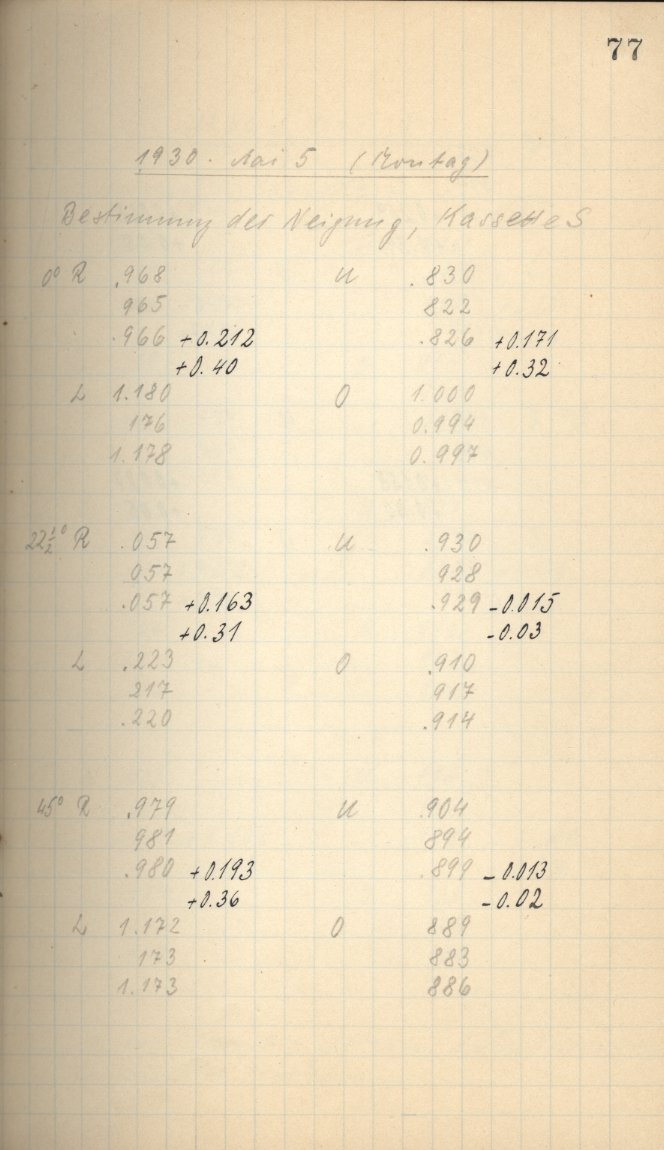 77
1930. Mai 5 (Montag)
Bestimmung der Neigung, Kassette S
0° R .968 U .830
965 822
.966 +0.212 .826 +0.171
+0.40 +0.32
L 1.180 O 1.000
176 0.994
1.178 0.997
22½° R .057 U .930
057 928
.057 +0.163 .929 -0.015
+0.31 -0.03
L .223 O .910
217 917
.220 .914
45° R .979 U .904
981 894
.980 +0.193 .899 -0.013
+0.36 -0.02
L 1.172 O 889
173 883
1.173 886